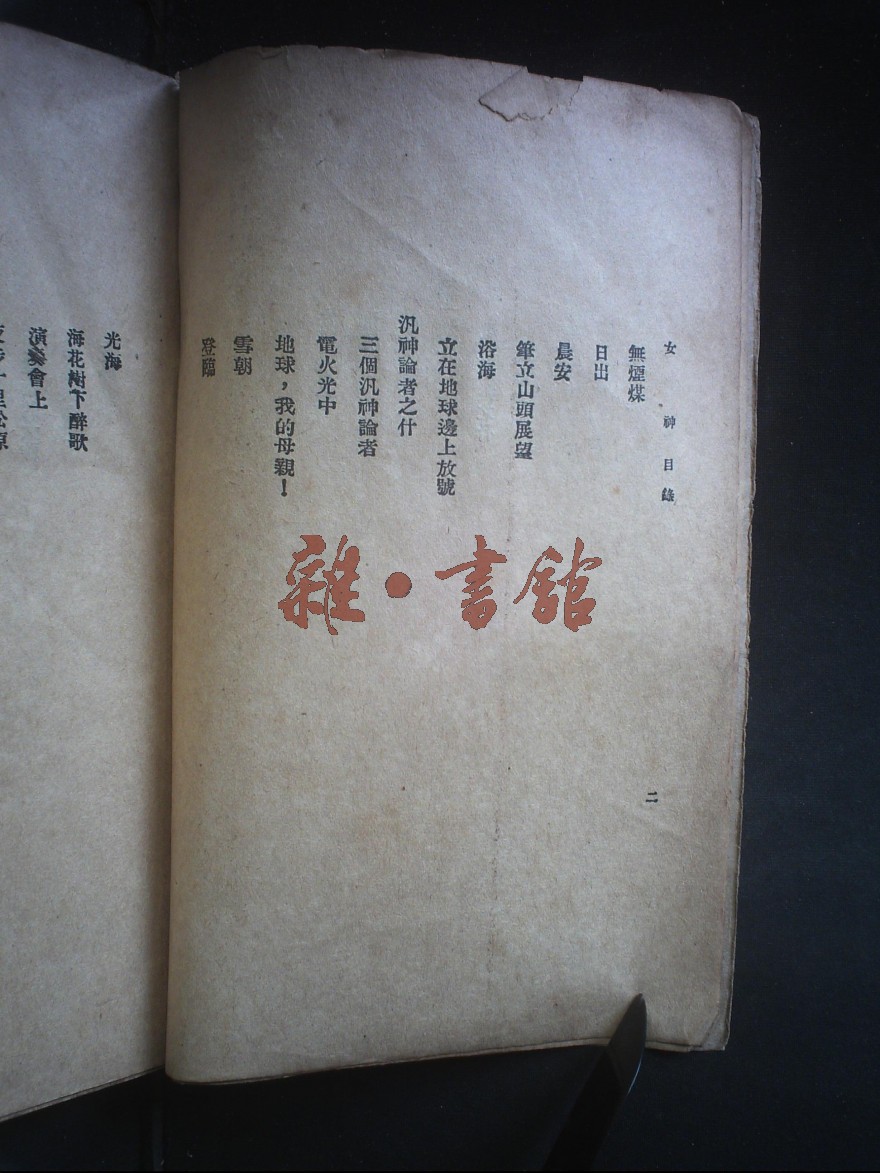 女神目錄
無煙煤
日出
晨安
筆立山頭展望
浴海
立在地球邊上放號
汎神論者之什
三個汎神論者
電火光中
地球，我的母親！
雪朝
登臨
二
光海
海花樹下醉歌
演奏會上
雜·書館